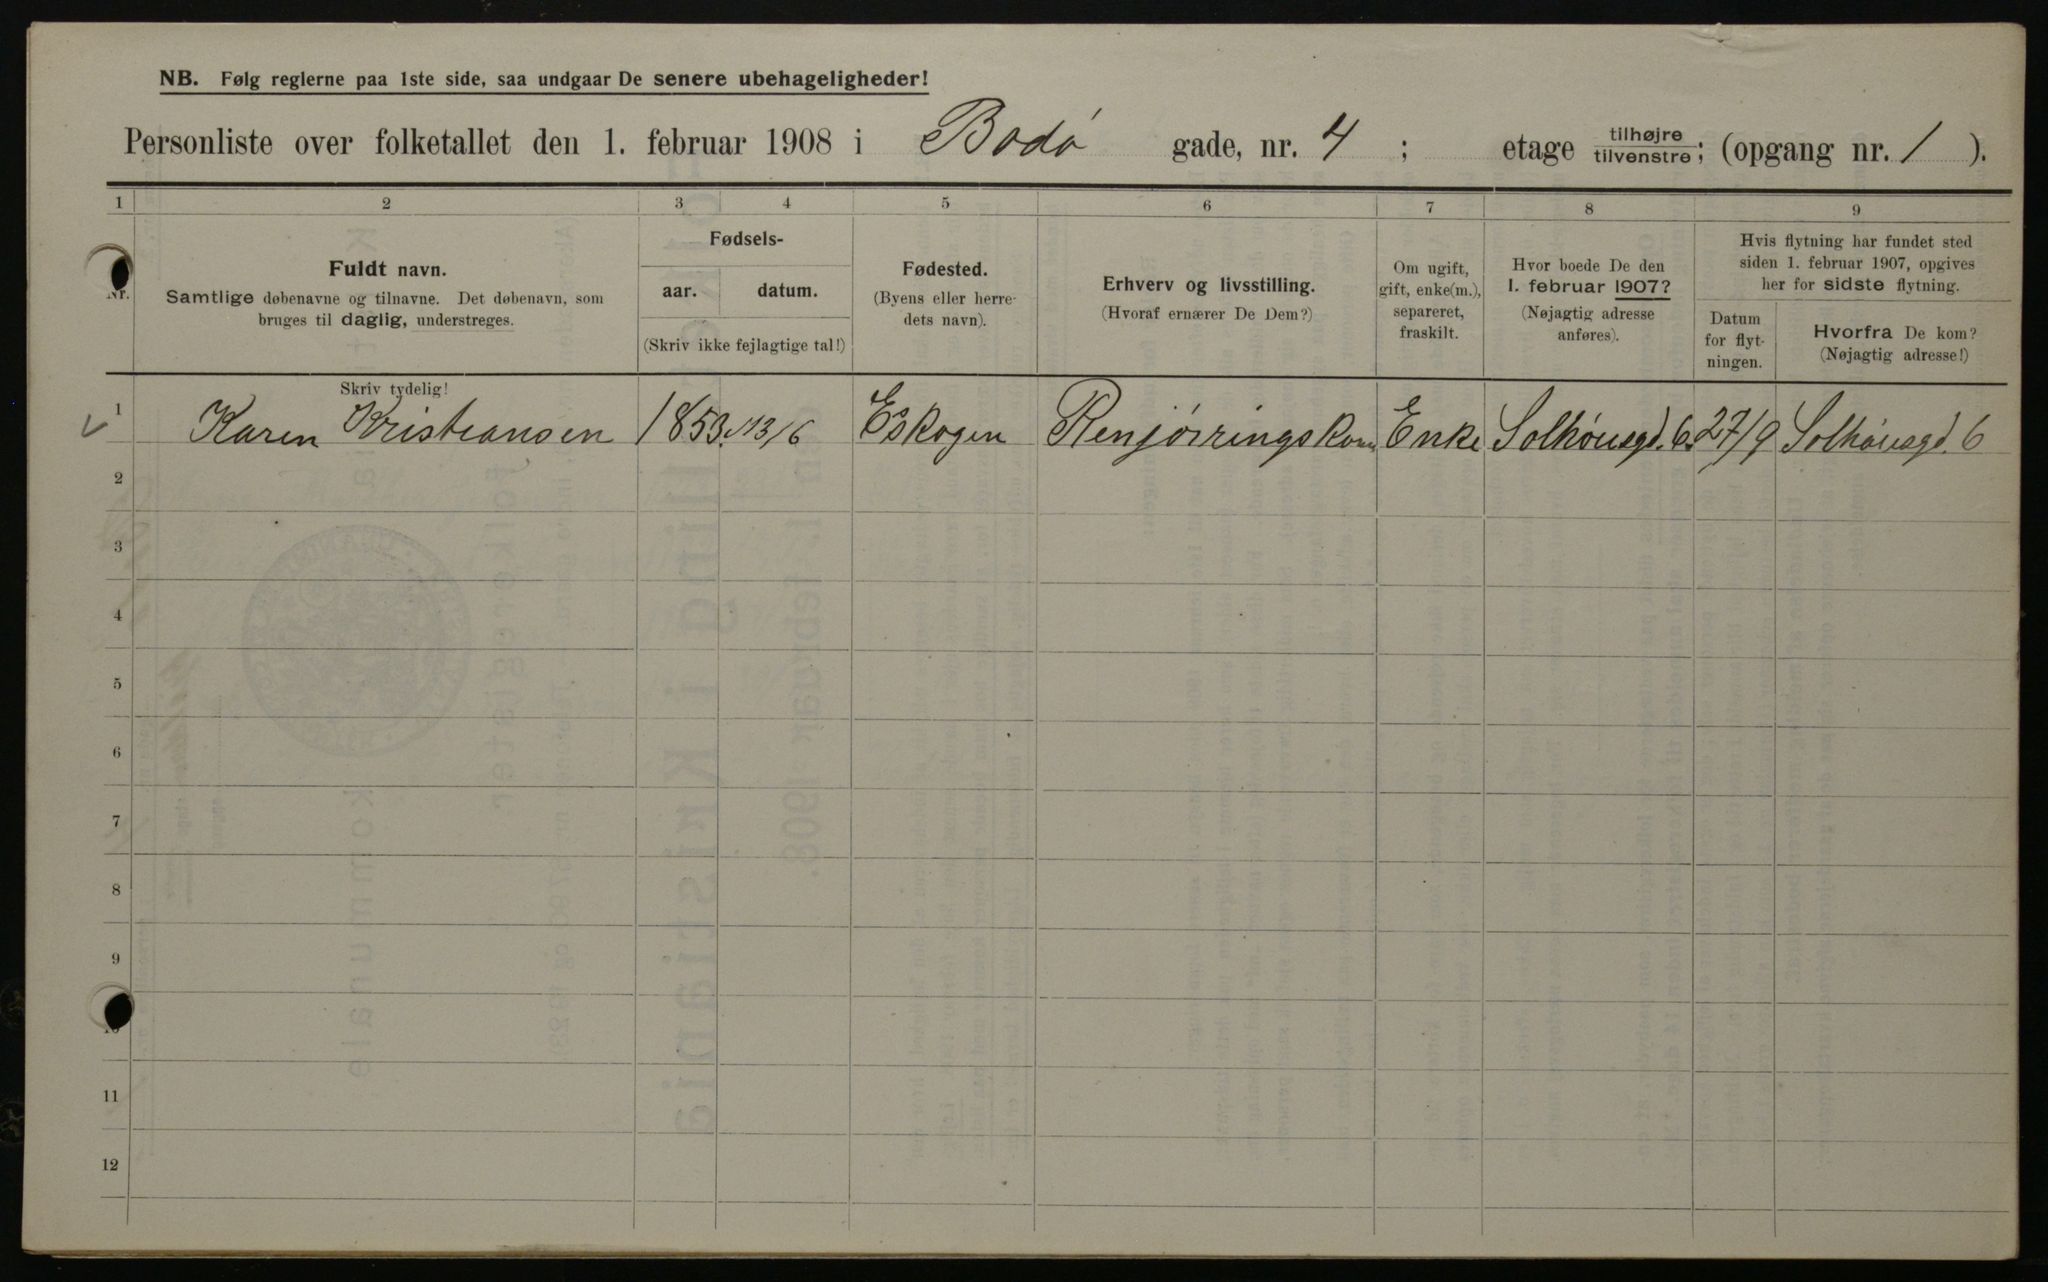 NB. Følg reglerne paa 1ste side, saa undgaar De senere ubehageligheder!
Personliste over folketallet den 1. februar 1908 i Bodø gade, nr. 4 ; etage tilhøjre tilvenstre; (opgang nr. 1 ).
1 2 3 4 5 6 7 8 9
Nr.
Fuldt navn.
Samtlige døbenavne og tilnavne. Det døbenavn, som
bruges til daglig, understreges.
Skriv tydelig!
Fødsels-
aar. datum.
(Skriv ikke fejlagtige tal!)
Fødested.
(Byens eller herre-
dets navn).
Erhverv og livsstilling.
(Hvoraf ernærer De Dem?)
Om ugift,
gift, enke(m.),
separeret,
fraskilt.
Hvor boede De den
1. februar 1907?
(Nøjagtig adresse
anføres).
Hvis flytning har fundet sted
siden 1. februar 1907, opgives
her for sidste flytning.
Datum
for flyt-
ningen.
Hvorfra De kom?
(Nøjagtig adresse!)
1 Karen Kristiansen 1853 13/6 Eskogen Renjøiringskone Enke Solhøusgd. 6 27/9 Solhøusgd. 6
2
3
4
5
6
7
8
9
10
11
12